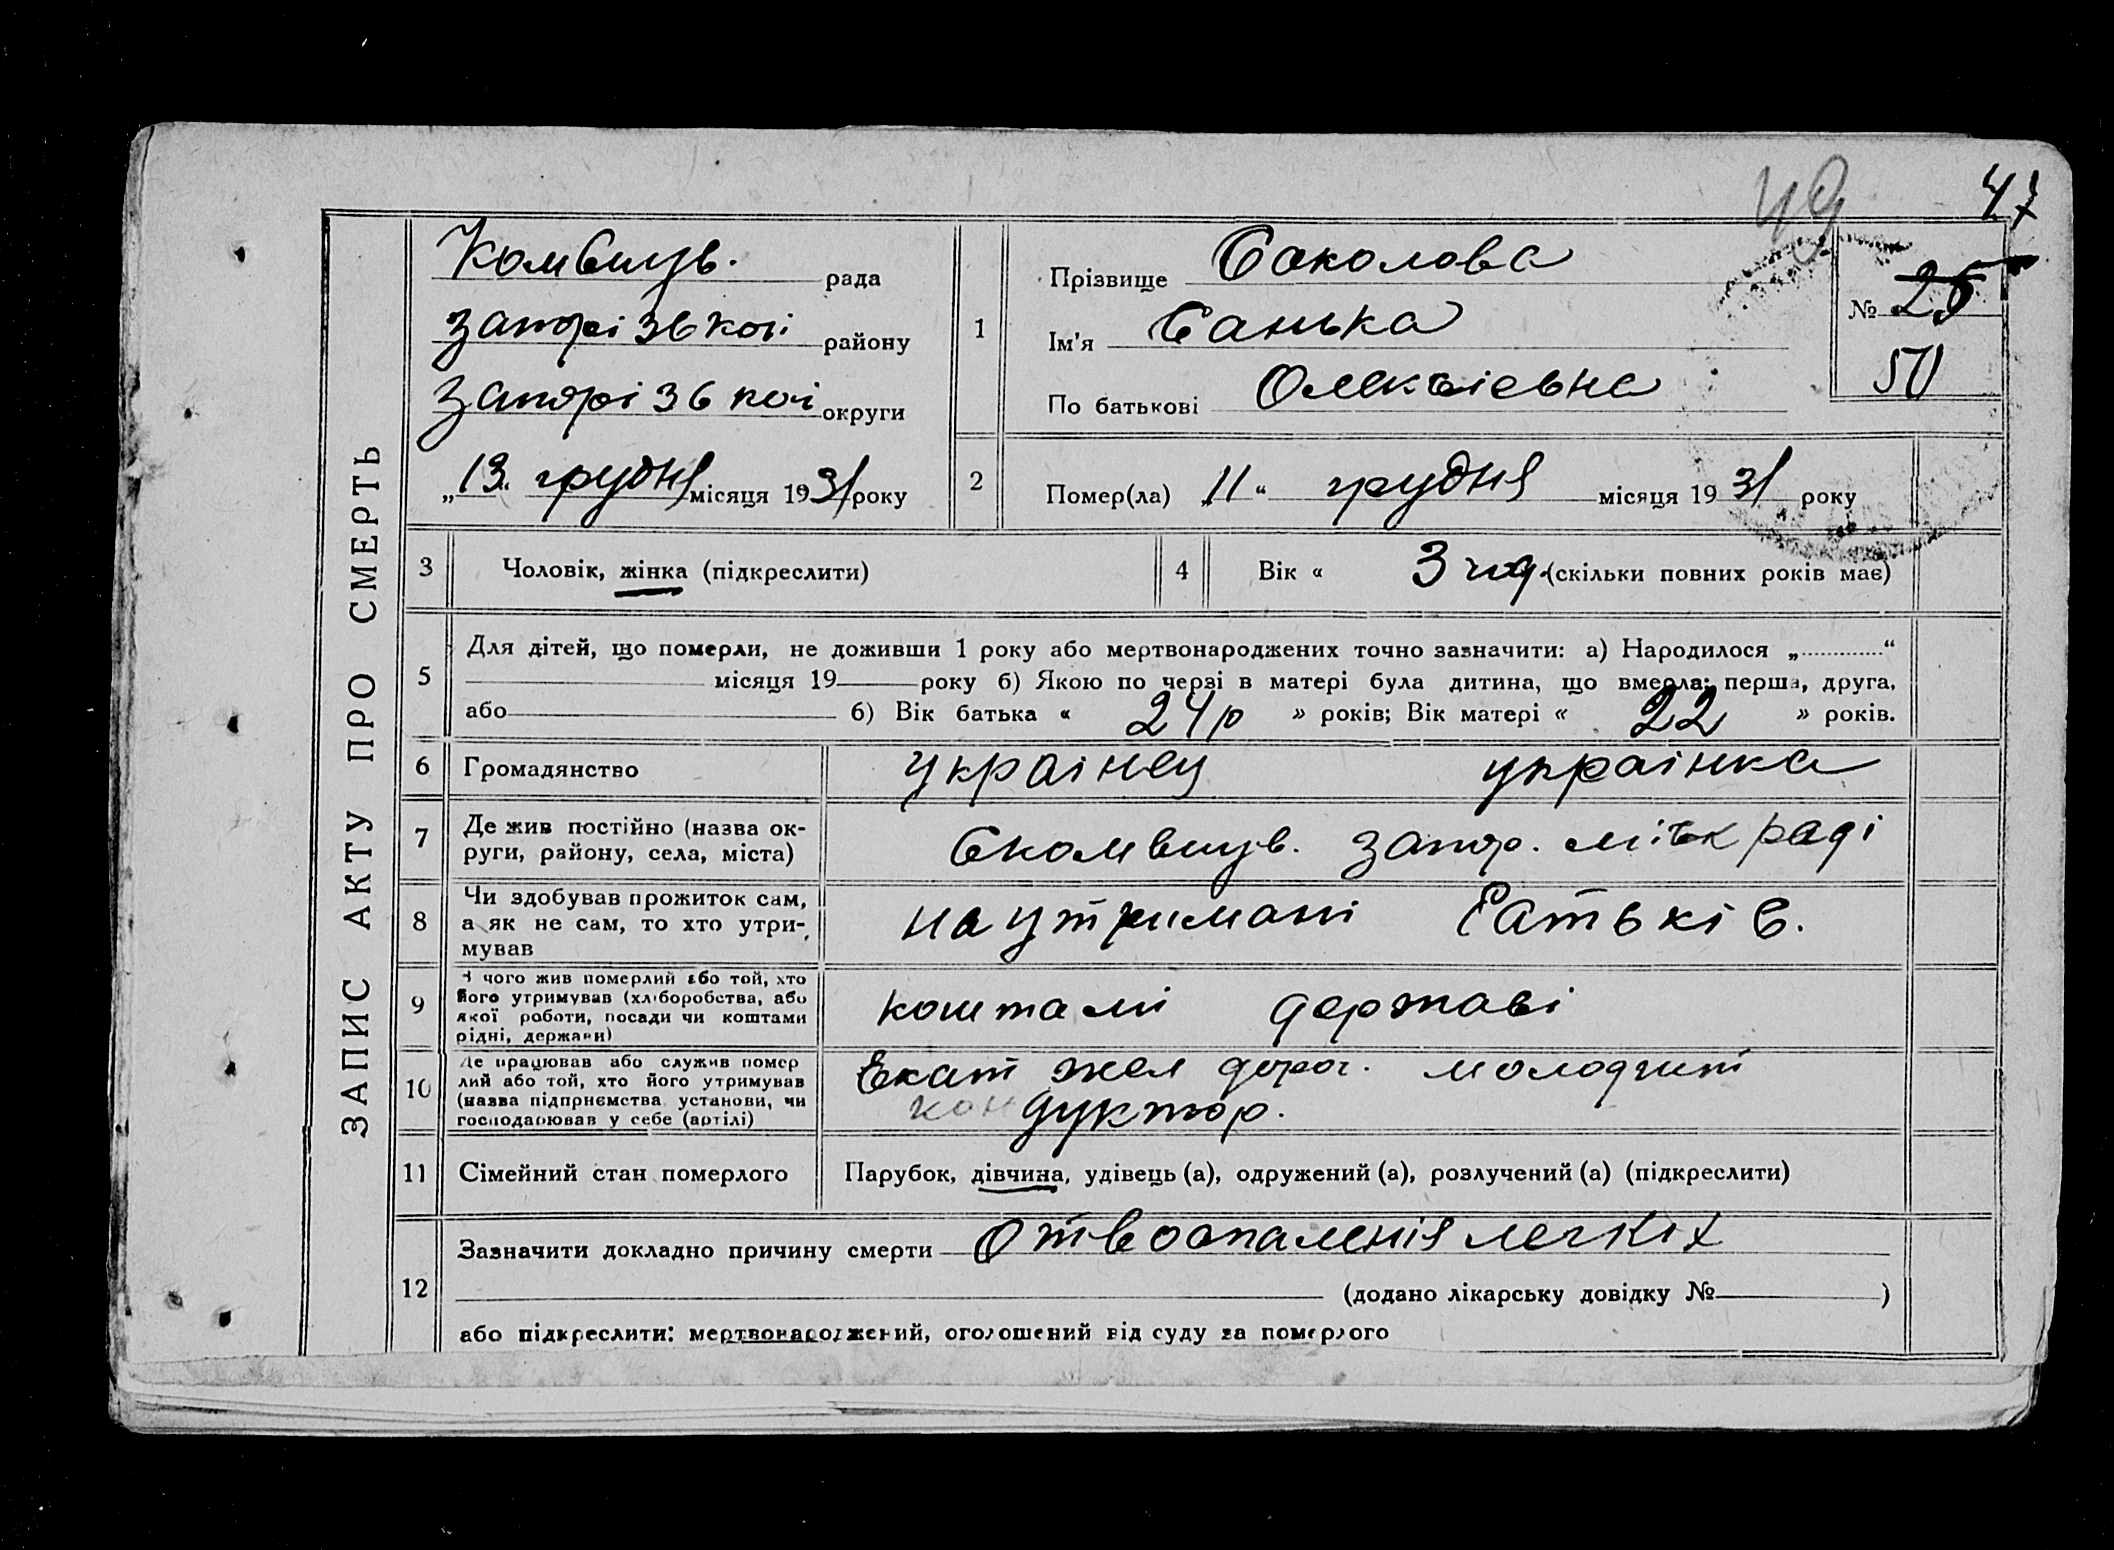 49
47
ЗАПИС АКТУ ПРО СМЕРТЬ
Комвишув. рада
Запорізької району
Запорізької округи
„13“ грудня місяця 1931 року
1
Прізвище Соколова
Ім'я Санька
По батькові Олексіевна
№ 25
50
2 Помер(ла) „11“ грудня місяця 1931 року
3 Чоловік, жінка (підкреслити)
4 Вік « 3 год. (скільки повних років має)
5 Для дітей, що померли, не доживши 1 року або мертвонароджених точно зазначити: а) Народилося „ “
місяця 19 року б) Якою по черзі в матері була дитина, що вмерла: перша, друга,
або б) Вік батька « 24 р » років; Вік матері « 22 » років.
6 Громадянство українец українка
7 Де жив постійно (назва ок-
руги, району, села, міста)
С комвишув. запор. міськ раді
8 Чи здобував прожиток сам,
а як не сам, то хто утри-
мував
на утримані батьків.
9 З чого жив померлий або той, хто
його утримував (хліборобства, або
якої роботи, посади чи коштами
рідні, держави)
коштамі державі
10 Де працював або служив помер
лий або той, хто його утримував
(назва підприємства установи, чи
господарював у себе (артілі)
Екат жел дорог. молодший
кондуктор.
11 Сімейний стан померлого Парубок, дівчина, удівець (а), одружений (а), розлучений (а) (підкреслити)
12 Зазначити докладно причину смерти От воспаленія легкіх
(додано лікарську довідку № )
або підкреслити: мертвонароджений, оголошений від суду за померлого